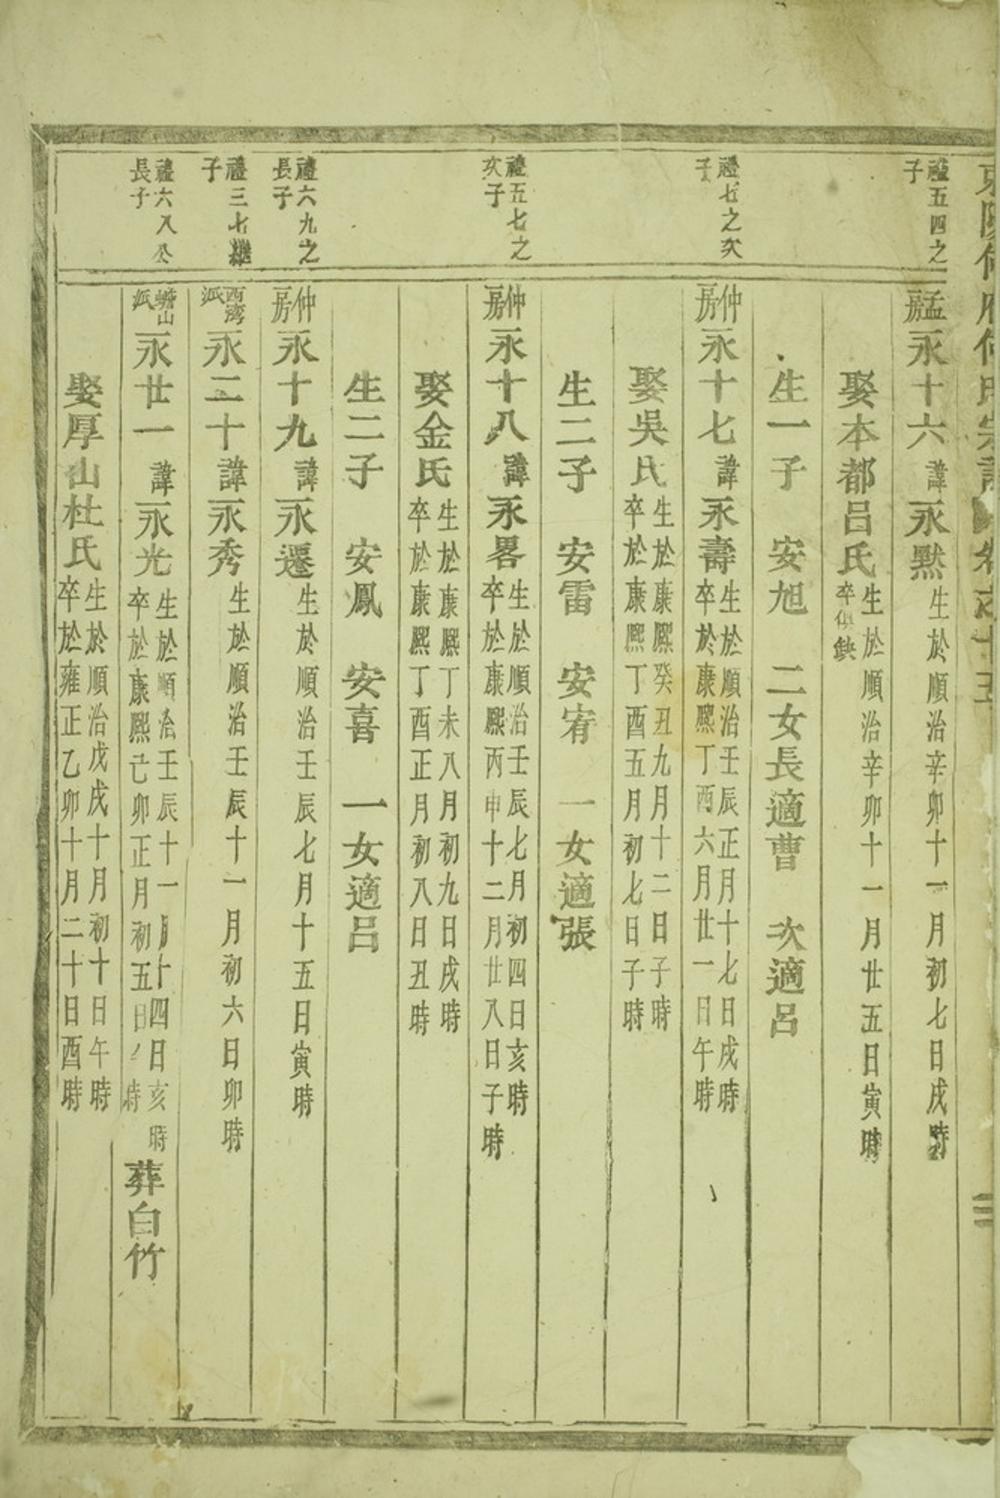 東陽何府何氏宗譜 卷之十五
禮五四之子
孟房永十六諱永黙生於順治辛卯十一月初七日戌時
娶本都呂氏生於順治辛卯十一月廿五日寅時卒俱缺
生一子 安旭 二女長適曹 次適呂
禮七之次子
仲房永十七諱永壽生於順治壬辰正月十七日戌時卒於康熙丁酉六月廿一日午時
娶吳氏生於康熙癸丑九月十二日子時卒於康熙丁酉五月初七日子時
生二子 安雷 安宥 一女適張
禮五七之次子
仲房永十八諱永畧生於順治壬辰七月初四日亥時卒於康熙丙申十二月廿八日子時
娶金氏生於康熙丁未八月初九日戌時卒於康熙丁酉正月初八日丑時
生二子 安鳳 安喜 一女適呂
禮六九之長子
仲房永十九諱永遷生於順治壬辰七月十五日寅時
禮三七繼子
西湾派永二十諱永秀生於順治壬辰十一月初六日卯時
禮六八公長子
山派永廿一諱永光生於順治壬辰十一月十四日亥時卒於康熙己卯正月初五日時葬白竹
娶厚山杜氏生於順治戊戌十月初十日午時卒於雍正乙卯十月二十日酉時